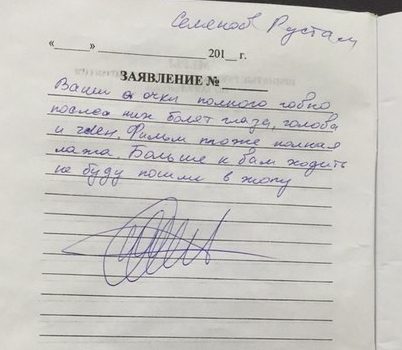 Семенов Рустам
«_____» ____________ 201__ г.
ЗАЯВЛЕНИЕ № ______
Ваши очки полного говно
после них болят глаза, голова
и член. Фильм тоже полная
лажа. Больше к вам ходить
не буду пошли в жопу